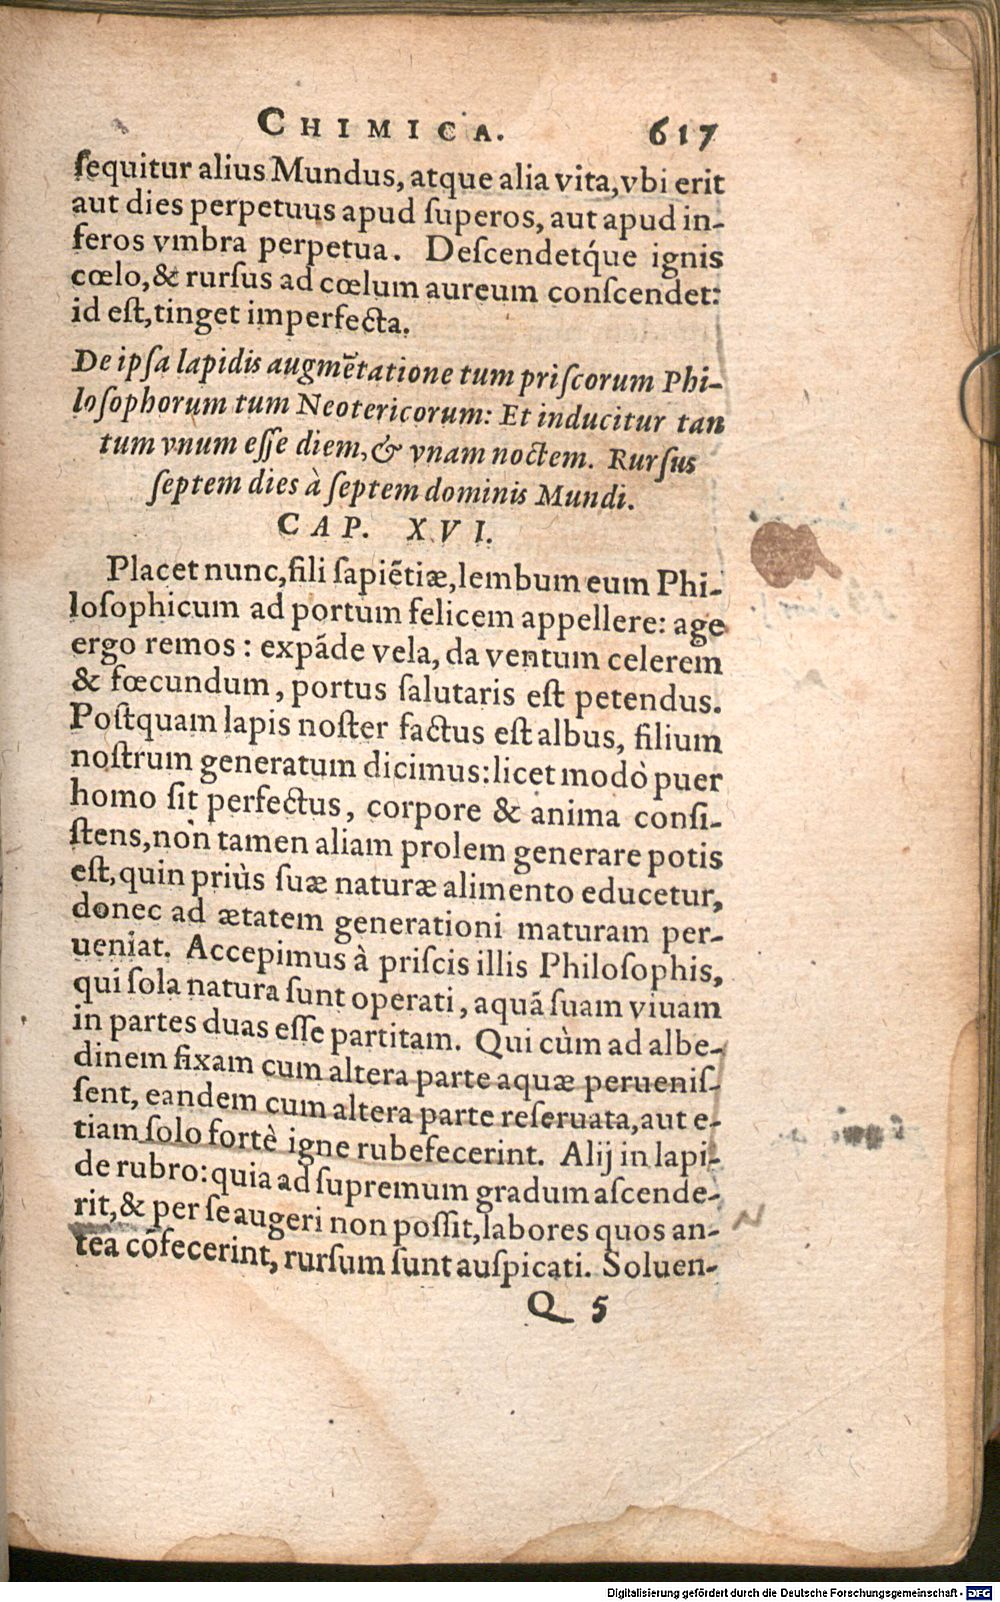 CHIMICA. 617
ſequitur alius Mundus, atque alia vita, vbi erit
aut dies perpetuus apud ſuperos, aut apud in-
feros vmbra perpetua. Deſcendetq́ue ignis
cœlo, & rurſus ad cœlum aureum conſcendet:
id eſt, tinget imperfecta.
De ipſa lapidis augmẽtatione tum priſcorum Phi-
loſophorum tum Neotericorum: Et inducitur tan
tum vnum eſſe diem, & vnam noctem. Rurſus
ſeptem dies à ſeptem dominis Mundi.
CAP. XVI.
Placet nunc, fili ſapiẽtiæ, lembum eum Phi-
loſophicum ad portum felicem appellere: age
ergo remos: expãde vela, da ventum celerem
& fœcundum, portus ſalutaris eſt petendus.
Poſtquam lapis noſter factus eſt albus, filium
noſtrum generatum dicimus: licet modò puer
homo ſit perfectus, corpore & anima conſi-
ſtens, non tamen aliam prolem generare potis
eſt, quin priùs ſuæ naturæ alimento educetur,
donec ad ætatem generationi maturam per-
ueniat. Accepimus à priſcis illis Philoſophis,
qui ſola natura ſunt operati, aquã ſuam viuam
in partes duas eſſe partitam. Qui cùm ad albe-
dinem fixam cum altera parte aquæ perueniſ-
ſent, eandem cum altera parte reſeruata, aut e-
tiam ſolo fortè igne rubefecerint. Alij in lapi-
de rubro: quia ad ſupremum gradum aſcende-
rit, & per ſe augeri non poſſit, labores quos an-
tea cõfecerint, rurſum ſunt auſpicati. Soluen-
Q 5
Digitalisierung gefördert durch die Deutsche Forschungsgemeinschaft - DFG